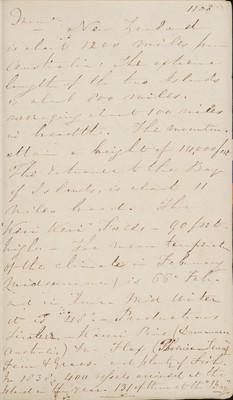 1103
Mem.
New Zealand
is abt 1200 miles from
Australia. The extreme
length of the two Islands
is about 800 miles.
averaging about 100 miles
in breadth. The mountains
attain a height of 14,000 feet
The Entrance to the Bay
of Islands, is about 11
miles broad. The
Keri Keri Falls - 90 feet
high - The mean temperature
of the climate in February
(Midsummer) is 66° Fah
and in June Mid Winter
it is 48° - Productions
Timber - Kauri Pine (Dammara
Australis) In. Flax (Phormium Tenax)
Fern & Grass. and plenty of Fish.
In 1836, 400 vessels anchored at the
Islands & year 131 of them at the "Bay"